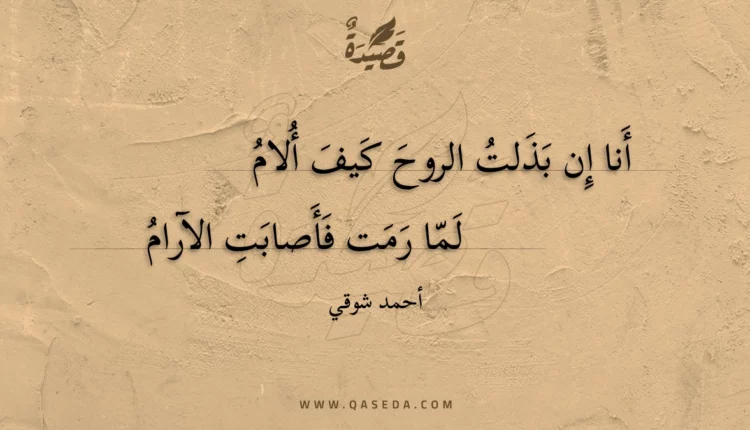 قَصِيدَةٌ
أَنا إِن بَذَلتُ الروحَ كَيفَ أُلامُ
لَمّا رَمَت فَأَصابَتِ الآرامُ
أحمد شوقي
WWW.QASEDA.COM